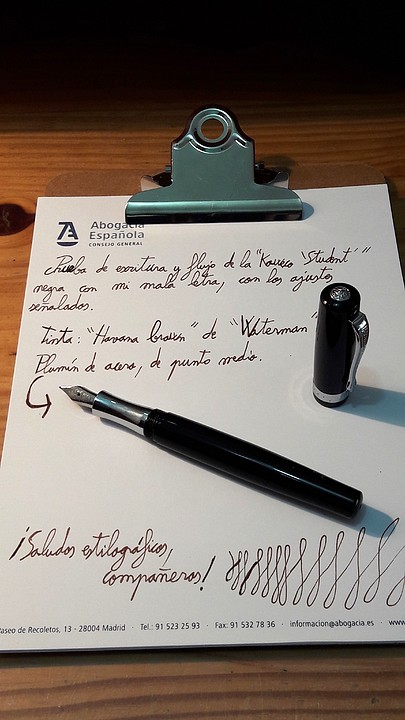 Abogacía
Española
CONSEJO GENERAL
Prueba de escritura y flujo de la "Kaweco 'Student'"
negra con mi mala letra, con los ajustes
señalados.
Tinta: "Havana brown" de "Waterman"
Plumín de acero, de punto medio.
¡Saludos estilográficos,
compañeros!
Paseo de Recoletos, 13 · 28004 Madrid · Tel.: 91 523 25 93 · Fax: 91 532 78 36 · informacion@abogacia.es · www